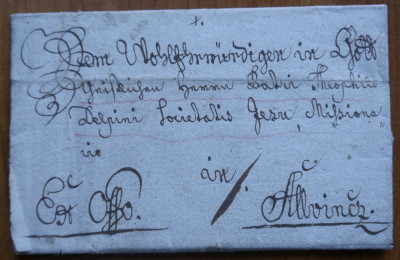 Dem Wohlehrwürdigen in Gott
Geistlichen Herrn Patri Theophilo
Delpini Societatis Jesu Missiona
rio
in
Ex Offo.
Allvincz.